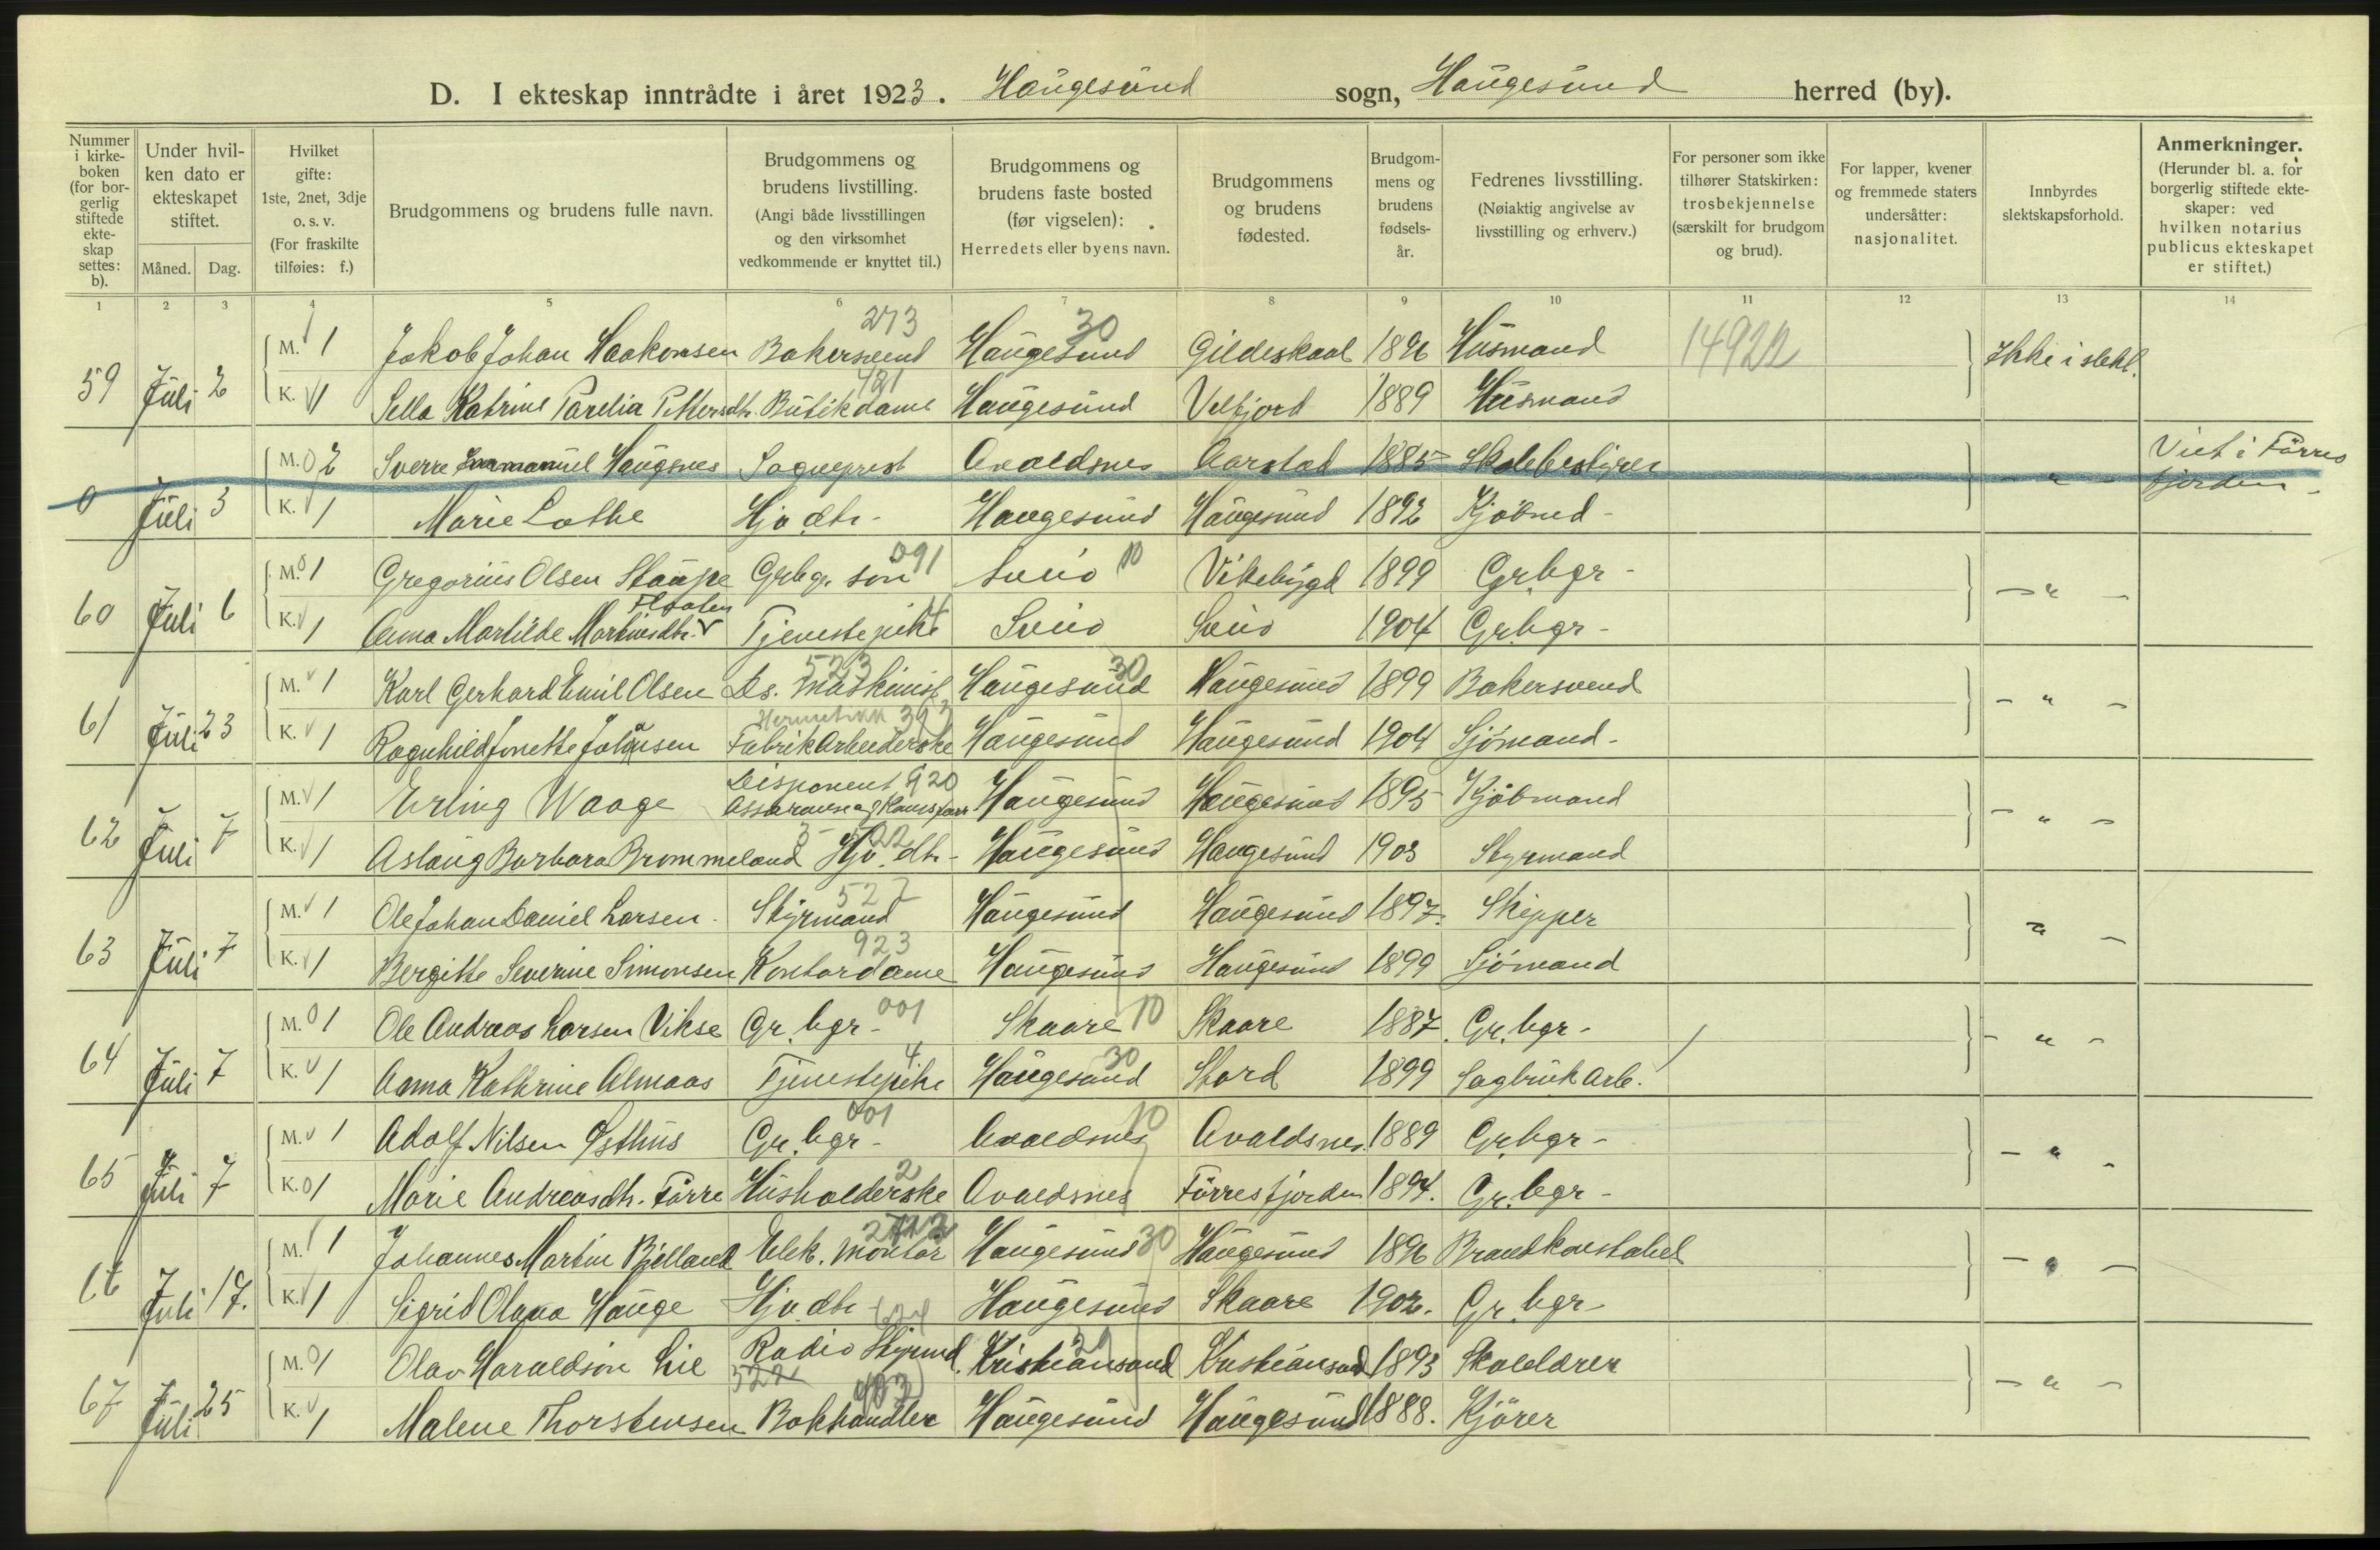 D. I ekteskap inntrådte i året 1923. Haugesund sogn, Haugesund herred (by).
Nummer i kirke-boken (for bor-gerlig stiftede ekte-skap settes: b).
Under hvil-ken dato er ekteskapet stiftet.
Måned. Dag.
Hvilket gifte: 1ste, 2net, 3dje o. s. v. (For fraskilte tilføies: f.)
Brudgommens og brudens fulle navn.
Brudgommens og brudens livstilling. (Angi både livsstillingen og den virksomhet vedkommende er knyttet til.)
Brudgommens og brudens faste bosted (før vigselen): Herredets eller byens navn.
Brudgommens og brudens fødested.
Brudgom-mens og brudens fødsels-år.
Fedrenes livsstilling. (Nøiaktig angivelse av livsstilling og erhverv.)
For personer som ikke tilhører Statskirken: trosbekjennelse (særskilt for brudgom og brud).
For lapper, kvener og fremmede staters undersåtter: nasjonalitet.
Innbyrdes slektskapsforhold.
Anmerkninger. (Herunder bl. a. for borgerlig stiftede ekte-skaper: ved hvilken notarius publicus ekteskapet er stiftet.)
1 2 3 4 5 6 7 8 9 10 11 12 13 14
273 30
M. 1 Jakob Johan Haakonsen Bakersvend Haugesund Gildeskaal 1896 Husmand 14922 Ikke i slekt.
59 Juli 2
K. 1 Sella Katrine Parelia Pettersdtr. Butikdame Haugesund Velfjord 1889 Husmand
M. 0 2 Sverre Immanuel Haugsnes Sogneprest Avaldsnes Aarstad 1885 Skolebestyrer - " - Viet i Førresfjorden -
0 Juli 3
K. 1 Marie Lothe Hjv. dtr. Haugesund Haugesund 1892 Kjöbmd -
091 10
M. 0 1 Gregorius Olsen Staupe Grbgr. sön Sveio Vikebygd 1899 Gr.bgr - - " -
60 Juli 6
K. 1 Anna Martilde Martinsdtr. Tjenestepike 4 Sveio Sveio 1904 Gr.bgr -
523 30
M. 1 Karl Gerhard Emil Olsen Ds. maskinist Haugesund Haugesund 1899 Bakersvend - " -
61 Juli 23
Hermetikk 393
K. 1 Ragnhild Jonette Johansen Fabrikarbeiderske Haugesund Haugesund 1904 Sjömand -
Disponent 920
M. 1 Erling Waage Haugesund Haugesund 1895 Kjöbmand - " -
62 Juli 7
K. 1 Aslaug Barbara Brommeland Hjv. dtr - Haugesund Haugesund 1903 Styrmand
522
M. 1 Ole Johan Daniel Larsen Styrmand Haugesund Haugesund 1897. Skipper " -
63 Juli 7
923
K. 1 Bergitte Severine Simonsen Kontordame Haugesund Haugesund 1899 Sjömand
M. 0 1 Ole Andreas Larsen Vikse Gr. bgr - 001 Skaare 10 Skaare 1887. Gr. bgr - - " -
64 Juli 7
4 30
K. 1 Anna Kathrine Almaas Tjenestepike Haugesund Stord 1899 Sagbruk arb.
001 10
M. 1 Adolf Nilsen Østhus Gr. bgr - Avaldsnes Avaldsnes 1889 Gr.bgr - - " -
65 Juli 7
2
K. 0 1 Marie Andreasdtr. Förre Husholderske Avaldsnes Förresfjorden 1894. Gr. bgr -
M. 1 Johannes Martin Bjelland Elek. montör Haugesund 30 Haugesund 1896 Brandkonstabel - " -
66 Juli 17.
K. 1 Sigrid Olava Hauge Hjv. dtr Haugesund Skaare 1902. Gr. bgr -
M. 0 1 Olav Haraldson Lie Radio Styrmd. Kristiansand Kristiansand 1893 Skolelærer - " -
67 Juli 25
522
K. 1 Malene Thorstensen Bokhandler Haugesund Haugesund 1888. Kjörer